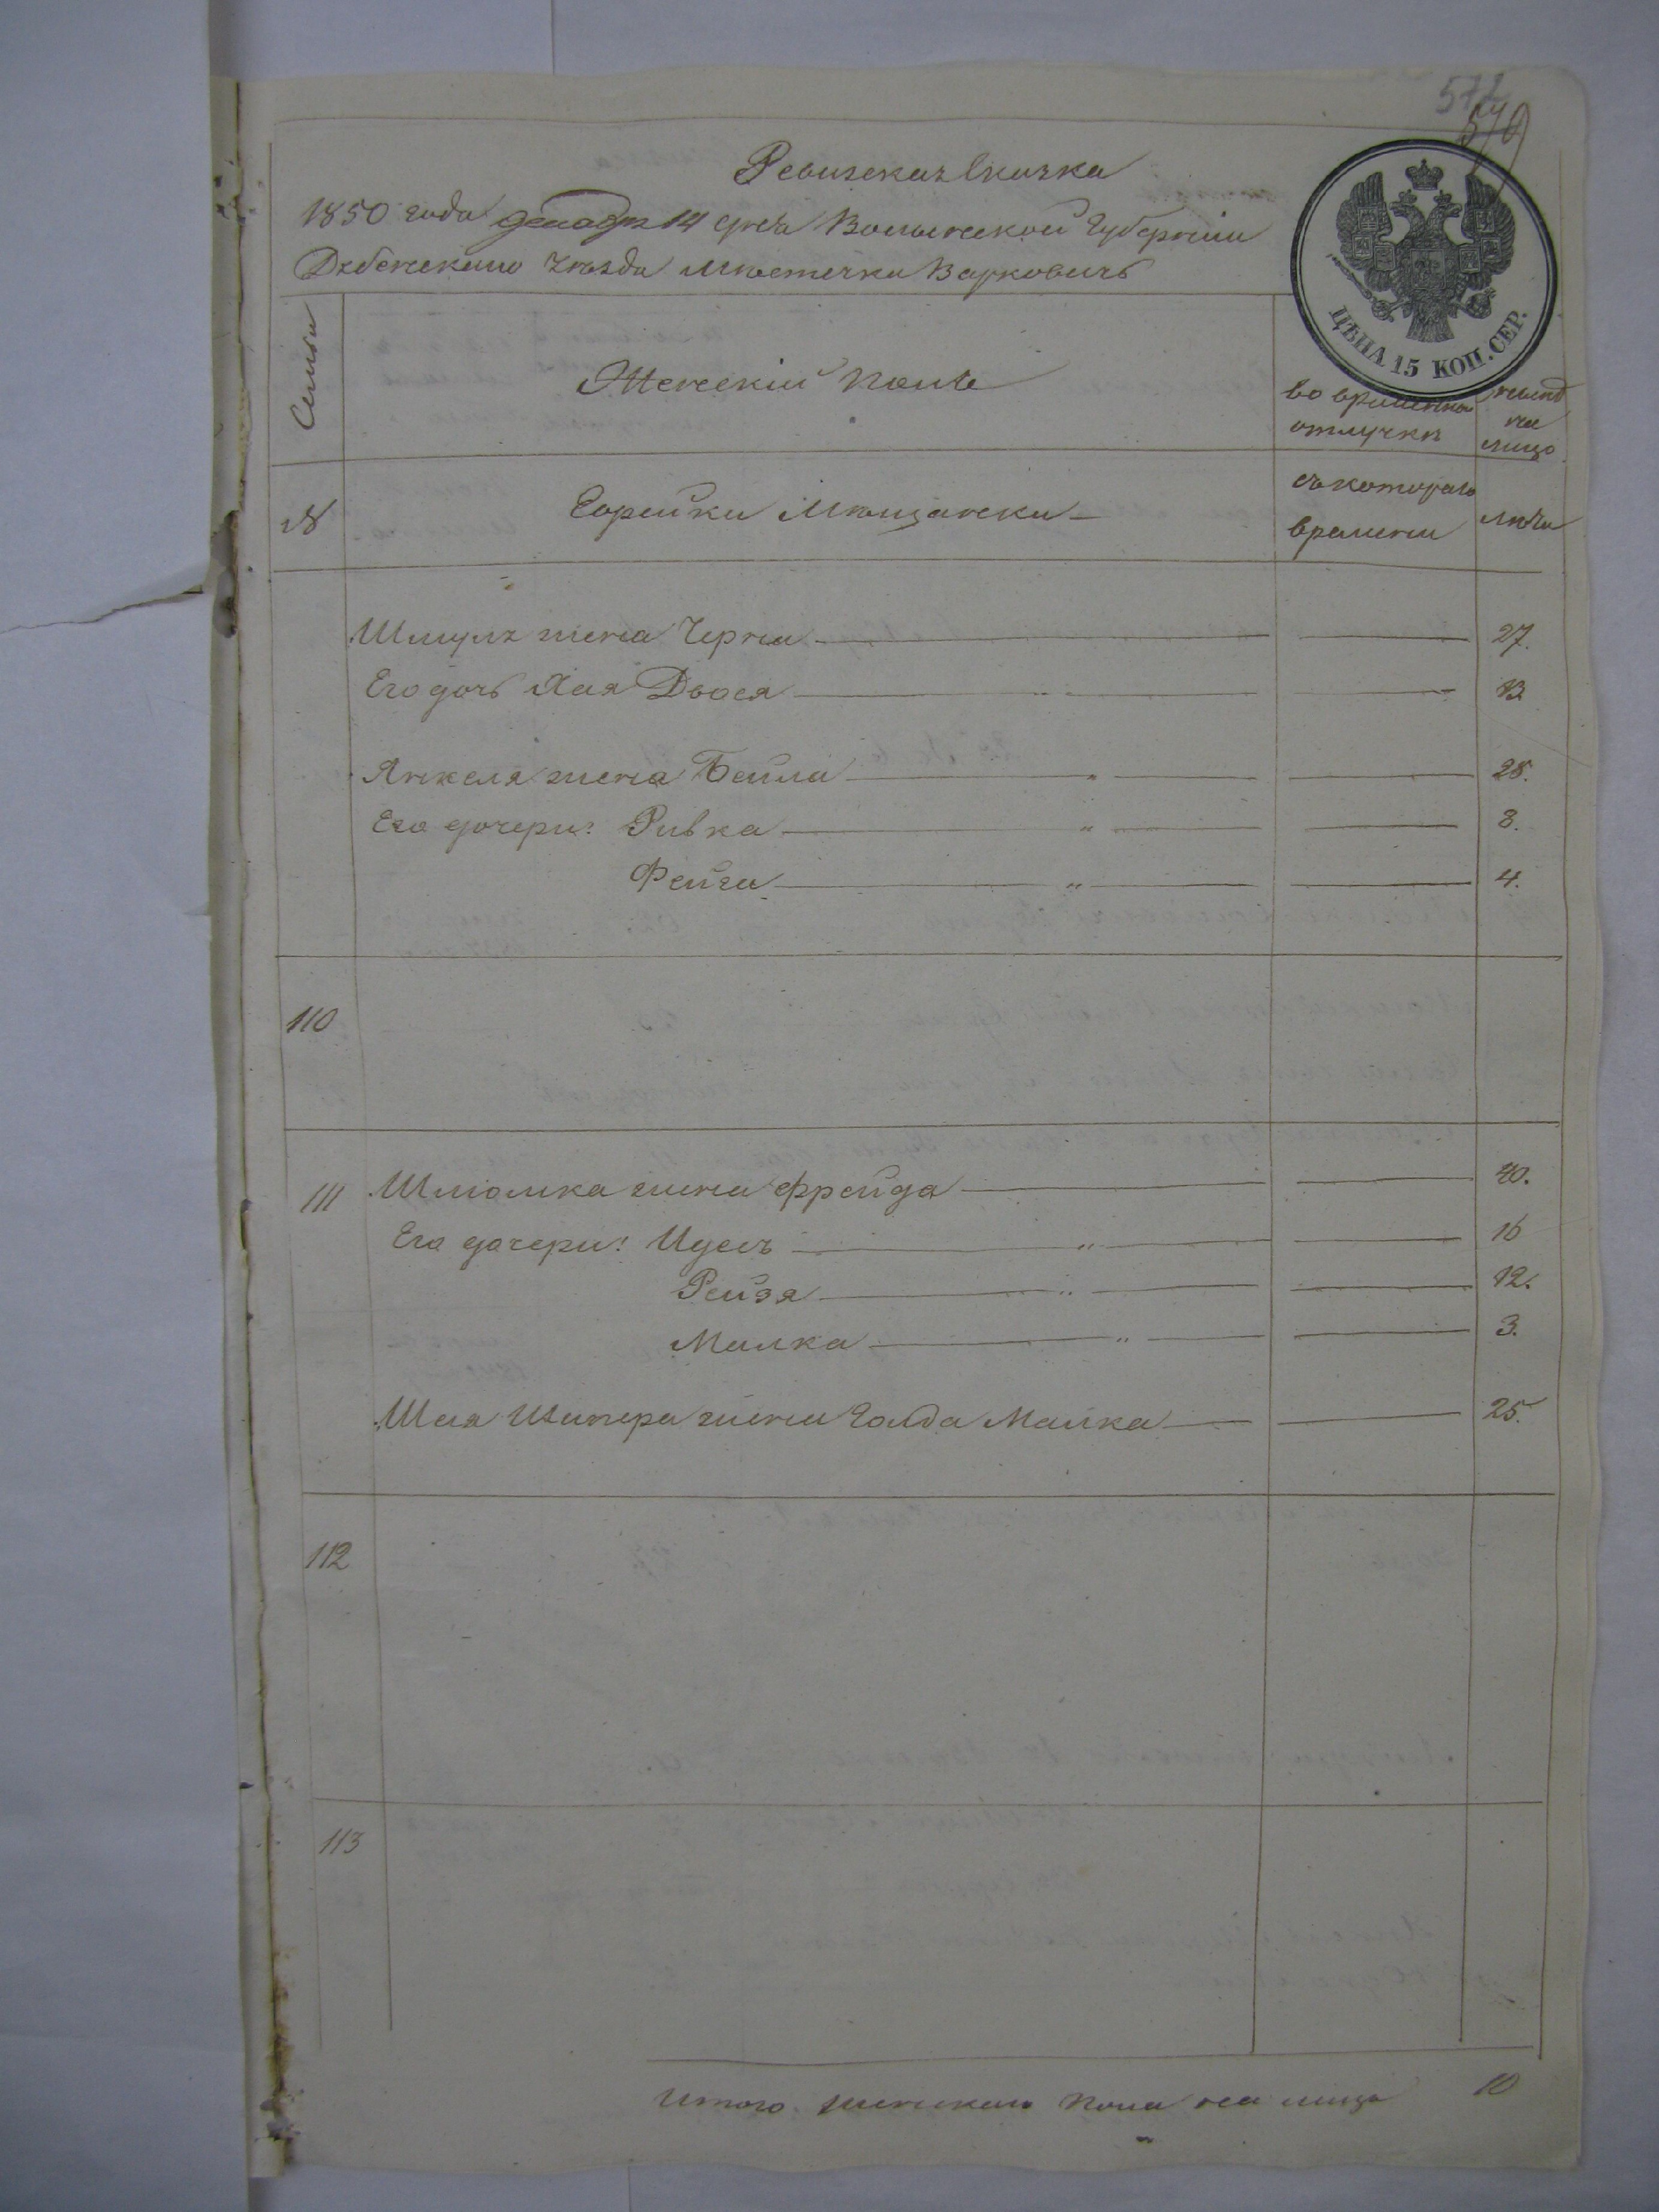 572
579
Ревизская Сказка
1850 года декабря 14 дня Волынской Губернии
Дубенского Уезда Местечка Варковичь
ЦѢНА 15 КОП. СЕР.
Семьи
Женский Полъ
во временной отлучке
ныне на лицо
№
Еврейки Мещански
съ котораго времени
лета
Шмуля жена Черна 27.
Его дочь Хая Двося 13
Янкеля жена Бейла " 28.
Его дочери: Ривка " 8.
Фейга " 4.
110
111 Шлиомка жена Фрейда 40.
Его дочери: Идесъ " 16
Рейзя " 12.
Малка " 3.
Шая Шипера жена Голда Малка 25.
112
113
Итого женскаго пола на лицо 10